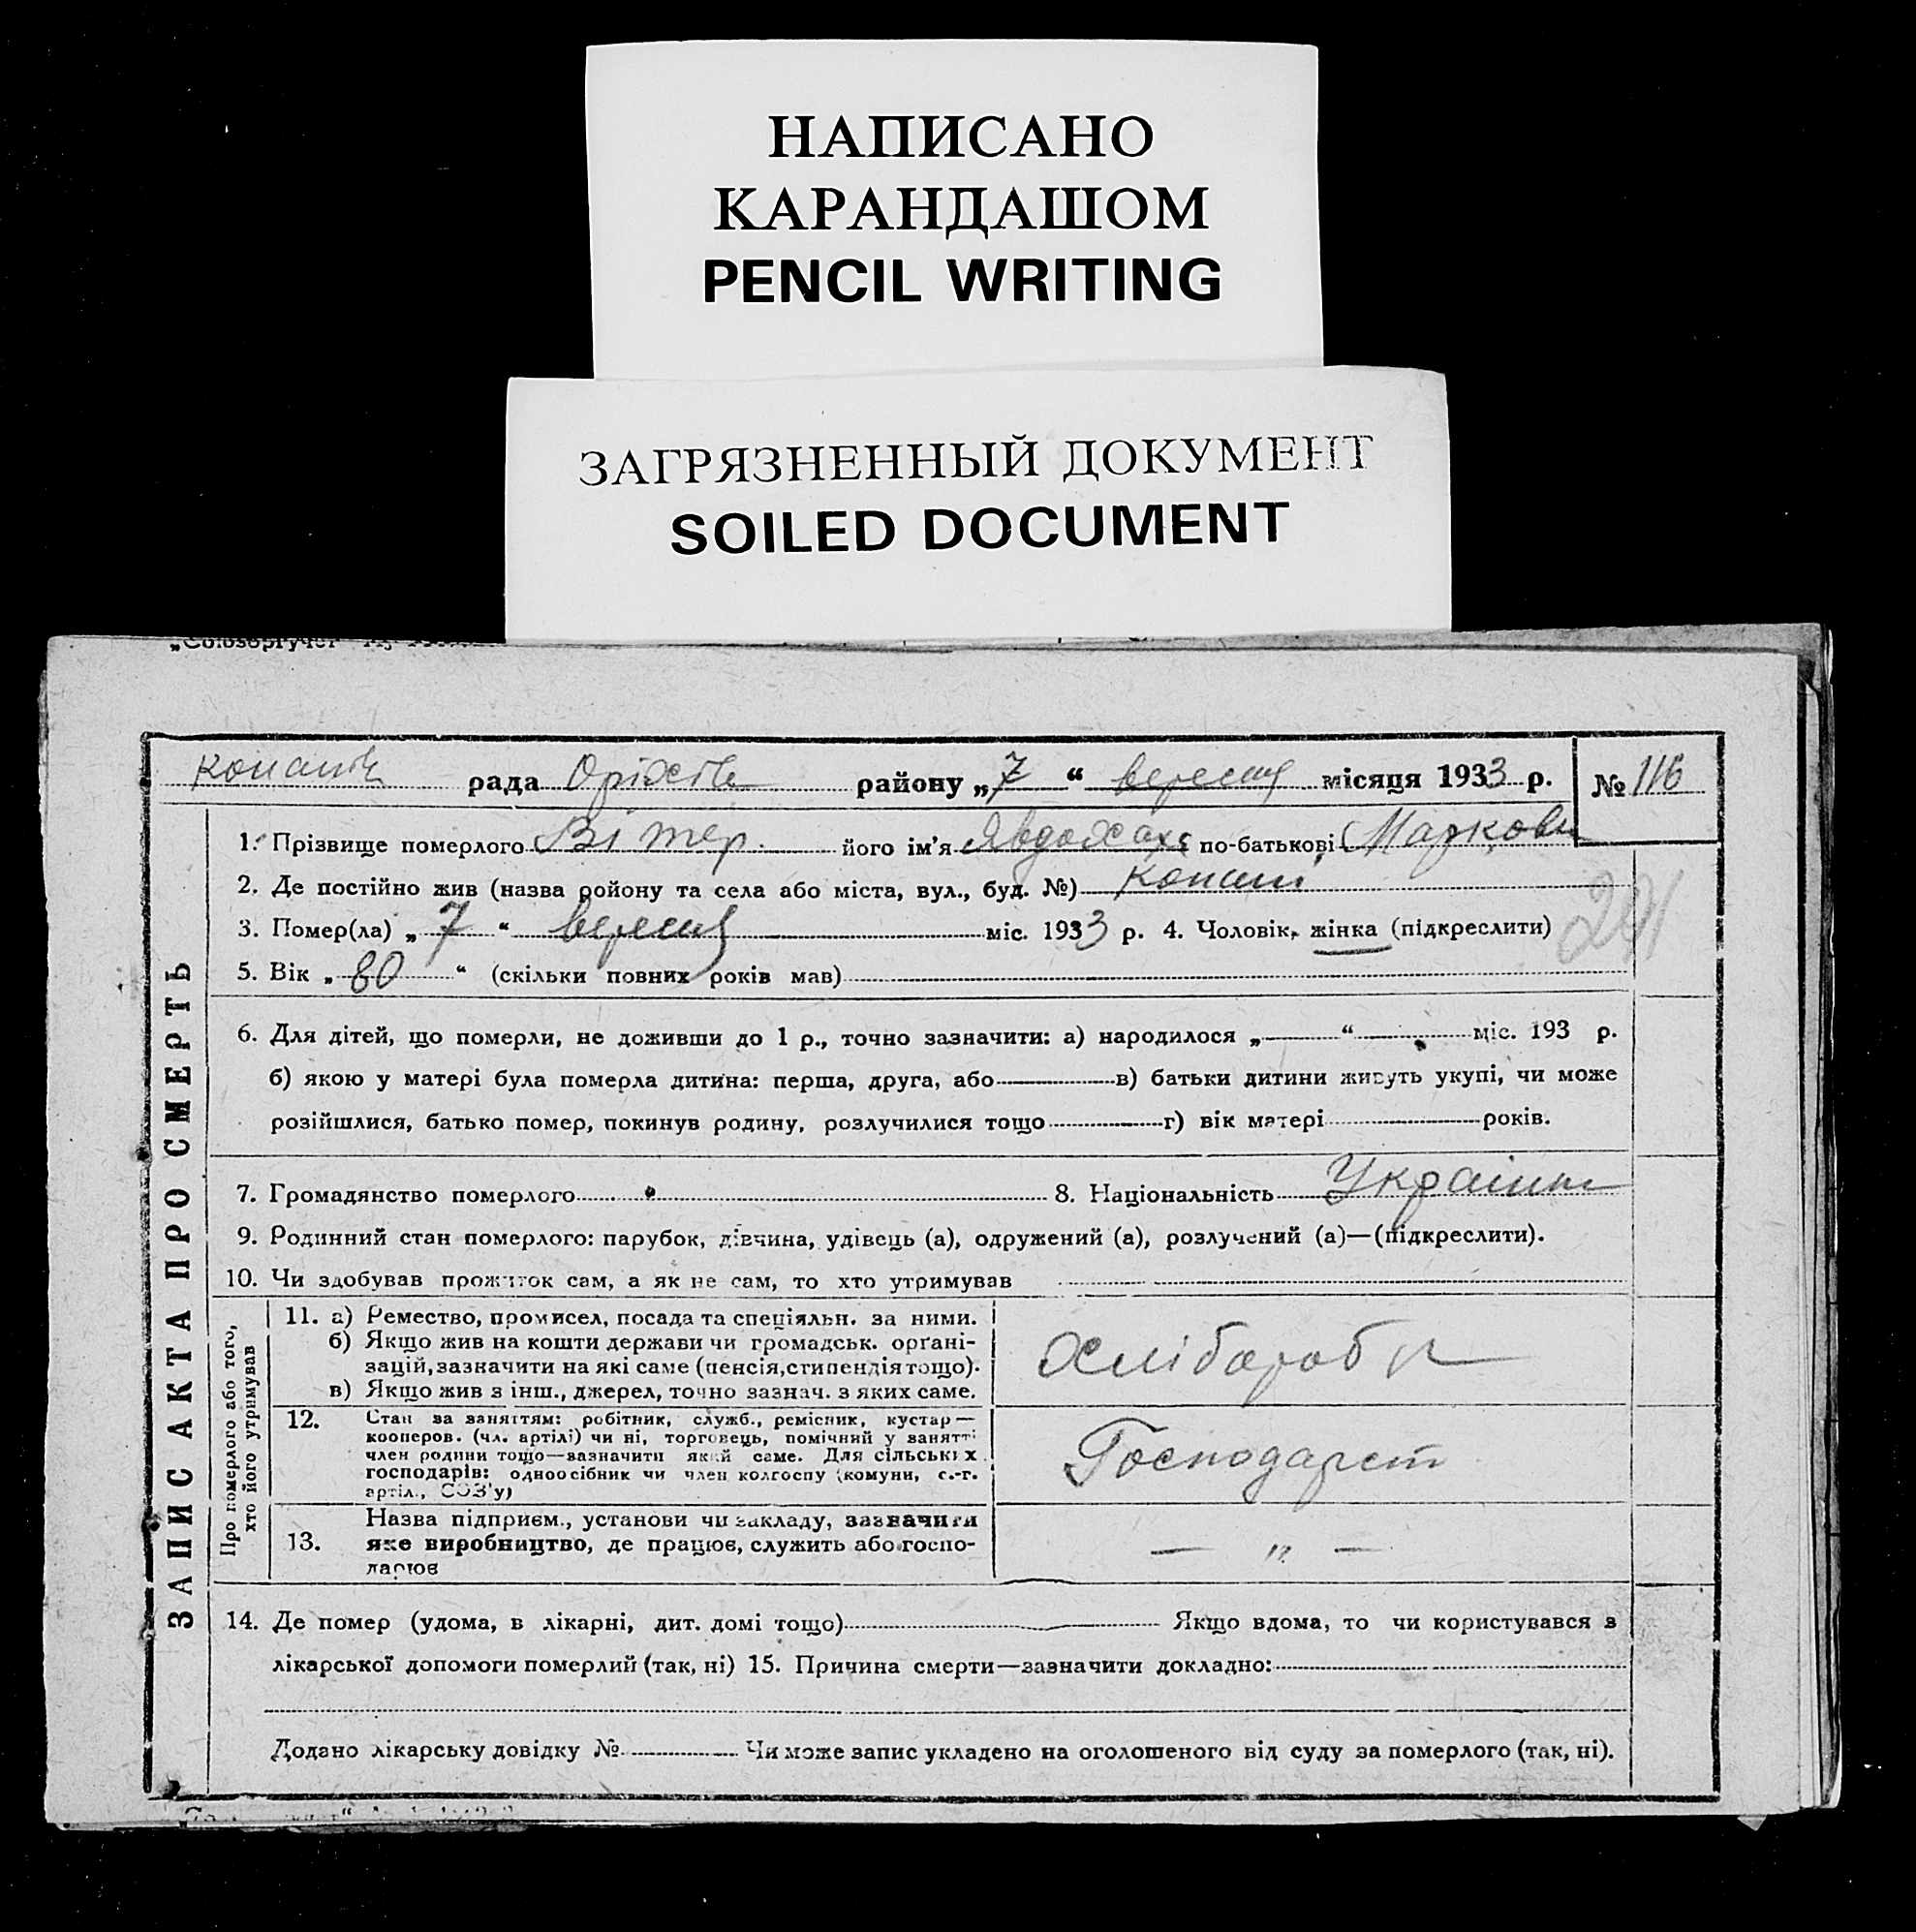 НАПИСАНО
КАРАНДАШОМ
PENCIL WRITING
ЗАГРЯЗНЕННЫЙ ДОКУМЕНТ
SOILED DOCUMENT
рада Оріхів району „7“ вересня місяця 1933 р. № 116
1. Прізвище померлого Вітер його ім'я по-батькові Маркови
2. Де постійно жив (назва ройону та села або міста, вул., буд. №) Копані
3. Помер(ла) „7“ вересня міс. 1933 р. 4. Чоловік, жінка (підкреслити)
291
5. Вік „80“ (скільки повних років мав)
6. Для дітей, що померли, не доживши до 1 р., точно зазначити: а) народилося „ “ міс. 193 р.
б) якою у матері була померла дитина: перша, друга, або в) батьки дитини живуть укупі, чи може
розійшлися, батько помер, покинув родину, розлучилися тощо г) вік матері років.
7. Громадянство померлого 8. Національність Україн
9. Родинний стан померлого: парубок, дівчина, удівець (а), одружений (а), розлучений (а)—(підкреслити).
10. Чи здобував прожиток сам, а як не сам, то хто утримував
ЗАПИС АКТА ПРО СМЕРТЬ
Про померлого або того,
хто його утримував
11. а) Ремество, промисел, посада та спеціяльн. за ними.
б) Якщо жив на кошти держави чи громадськ. орґані-
зацій, зазначити на які саме (пенсія, стипендія тощо).
в) Якщо жив з інш., джерел, точно зазнач. з яких саме.
Хлібороб
12. Стан за заняттям: робітник, служб., ремісник, кустар—
кооперов. (чл. артілі) чи ні, торговець, помічний у занятті
член родини тощо—зазначити який саме. Для сільських
господарів: одноосібник чи член колгоспу (комуни, с.-г.
артіл., СОЗ'у)
Господарст
13. Назва підприєм., установи чи закладу, зазначити
яке виробництво, де працює, служить або госпо-
дарює
— „ —
14. Де помер (удома, в лікарні, дит. домі тощо) Якщо вдома, то чи користувався з
лікарської допомоги померлий (так, ні) 15. Причина смерти—зазначити докладно:
Додано лікарську довідку № Чи може запис укладено на оголошеного від суду за померлого (так, ні).